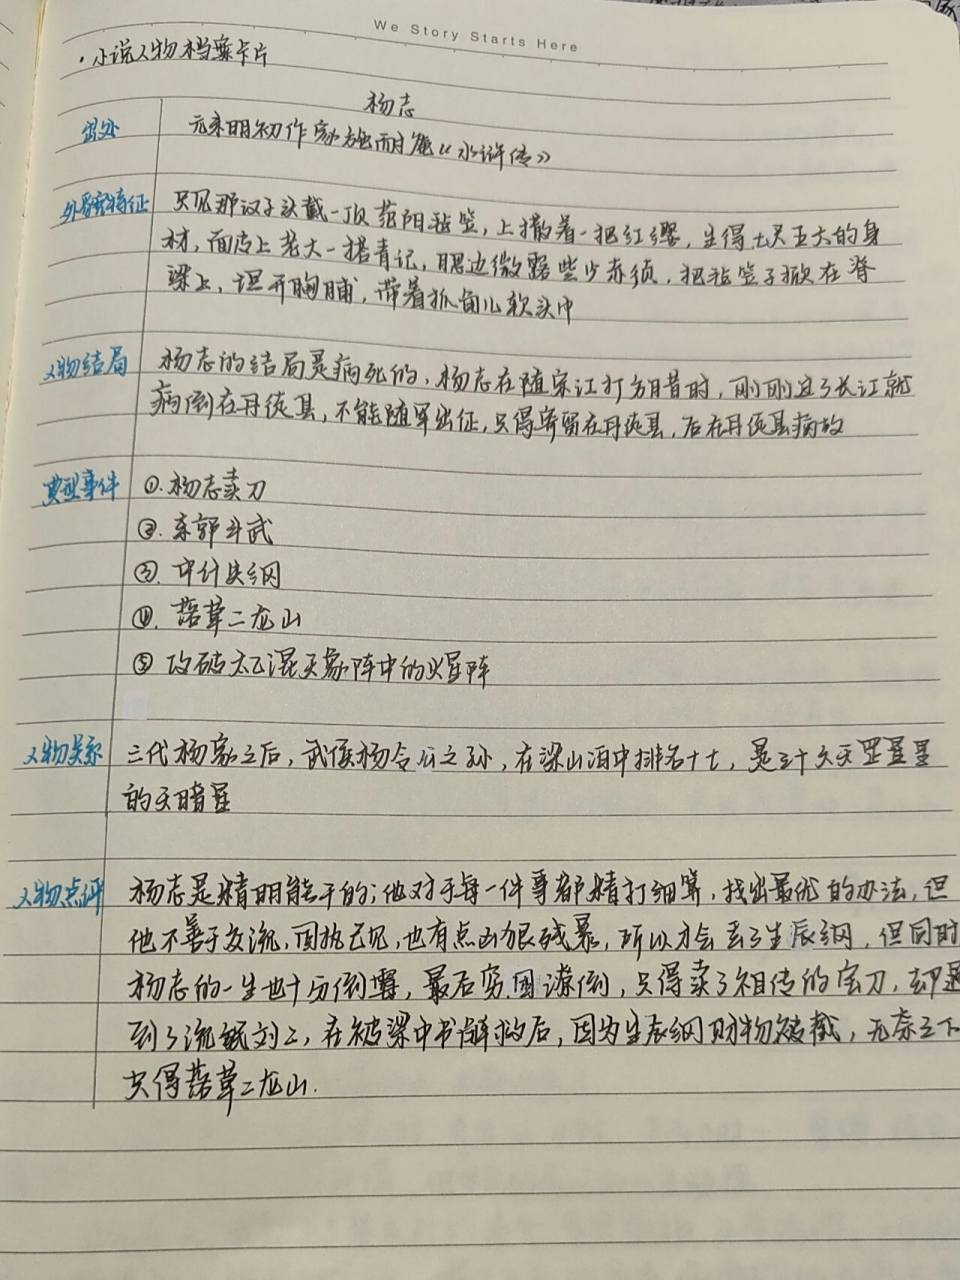 We Story Starts Here
·小说人物档案卡片
杨志
出处 元末明初作家施耐庵《水浒传》
外貌特征 只见那汉子头戴一顶范阳毡笠，上撒着一把红缨，生得七尺五六的身
材，面皮上老大一搭青记，腮边微露些少赤须，把毡笠子掀在脊
梁上，坦开胸脯，带着抓角儿软头巾
人物结局 杨志的结局是病死的，杨志在随宋江打方腊时，刚刚过了长江就
病倒在丹徒县，不能随军出征，只得寄留在丹徒县，后在丹徒县病故
典型事件 ①.杨志卖刀
②.东郭斗武
③.中计失纲
④.落草二龙山
⑤攻破太乙混天象阵中的火星阵
人物关系 三代杨家之后，武侯杨令公之孙，在梁山泊中排名十七，是三十六天罡星
的天暗星
人物点评 杨志是精明能干的；他对于每一件事都精打细算，找出最优的办法，但
他不善于交流，固执己见，也有点凶狠残暴，所以才会丢了生辰纲，但同时
杨志的一生也十分倒霉，最后穷困潦倒，只得卖了祖传的宝刀，却遇
到了流氓刘二，在被梁中书解救后，因为生辰纲财物被截，无奈之下
只得落草二龙山.